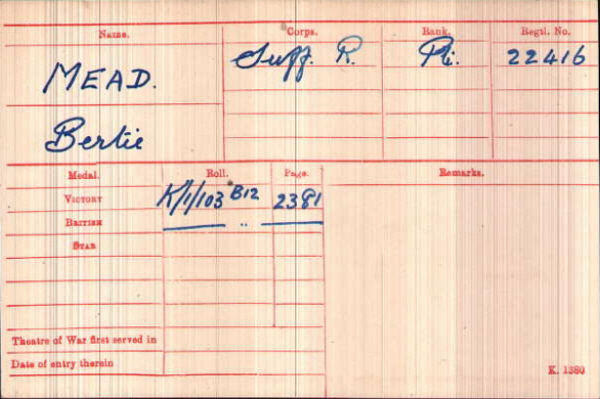 Name. Corps. Rank. Regtl. No.
MEAD. Suff. R. Pte. 22416
Bertie
Medal. Roll. Page. Remarks.
VICTORY K/1/103 B12 2381
BRITISH — „ —
STAR
Theatre of War first served in
Date of entry therein
K. 1380